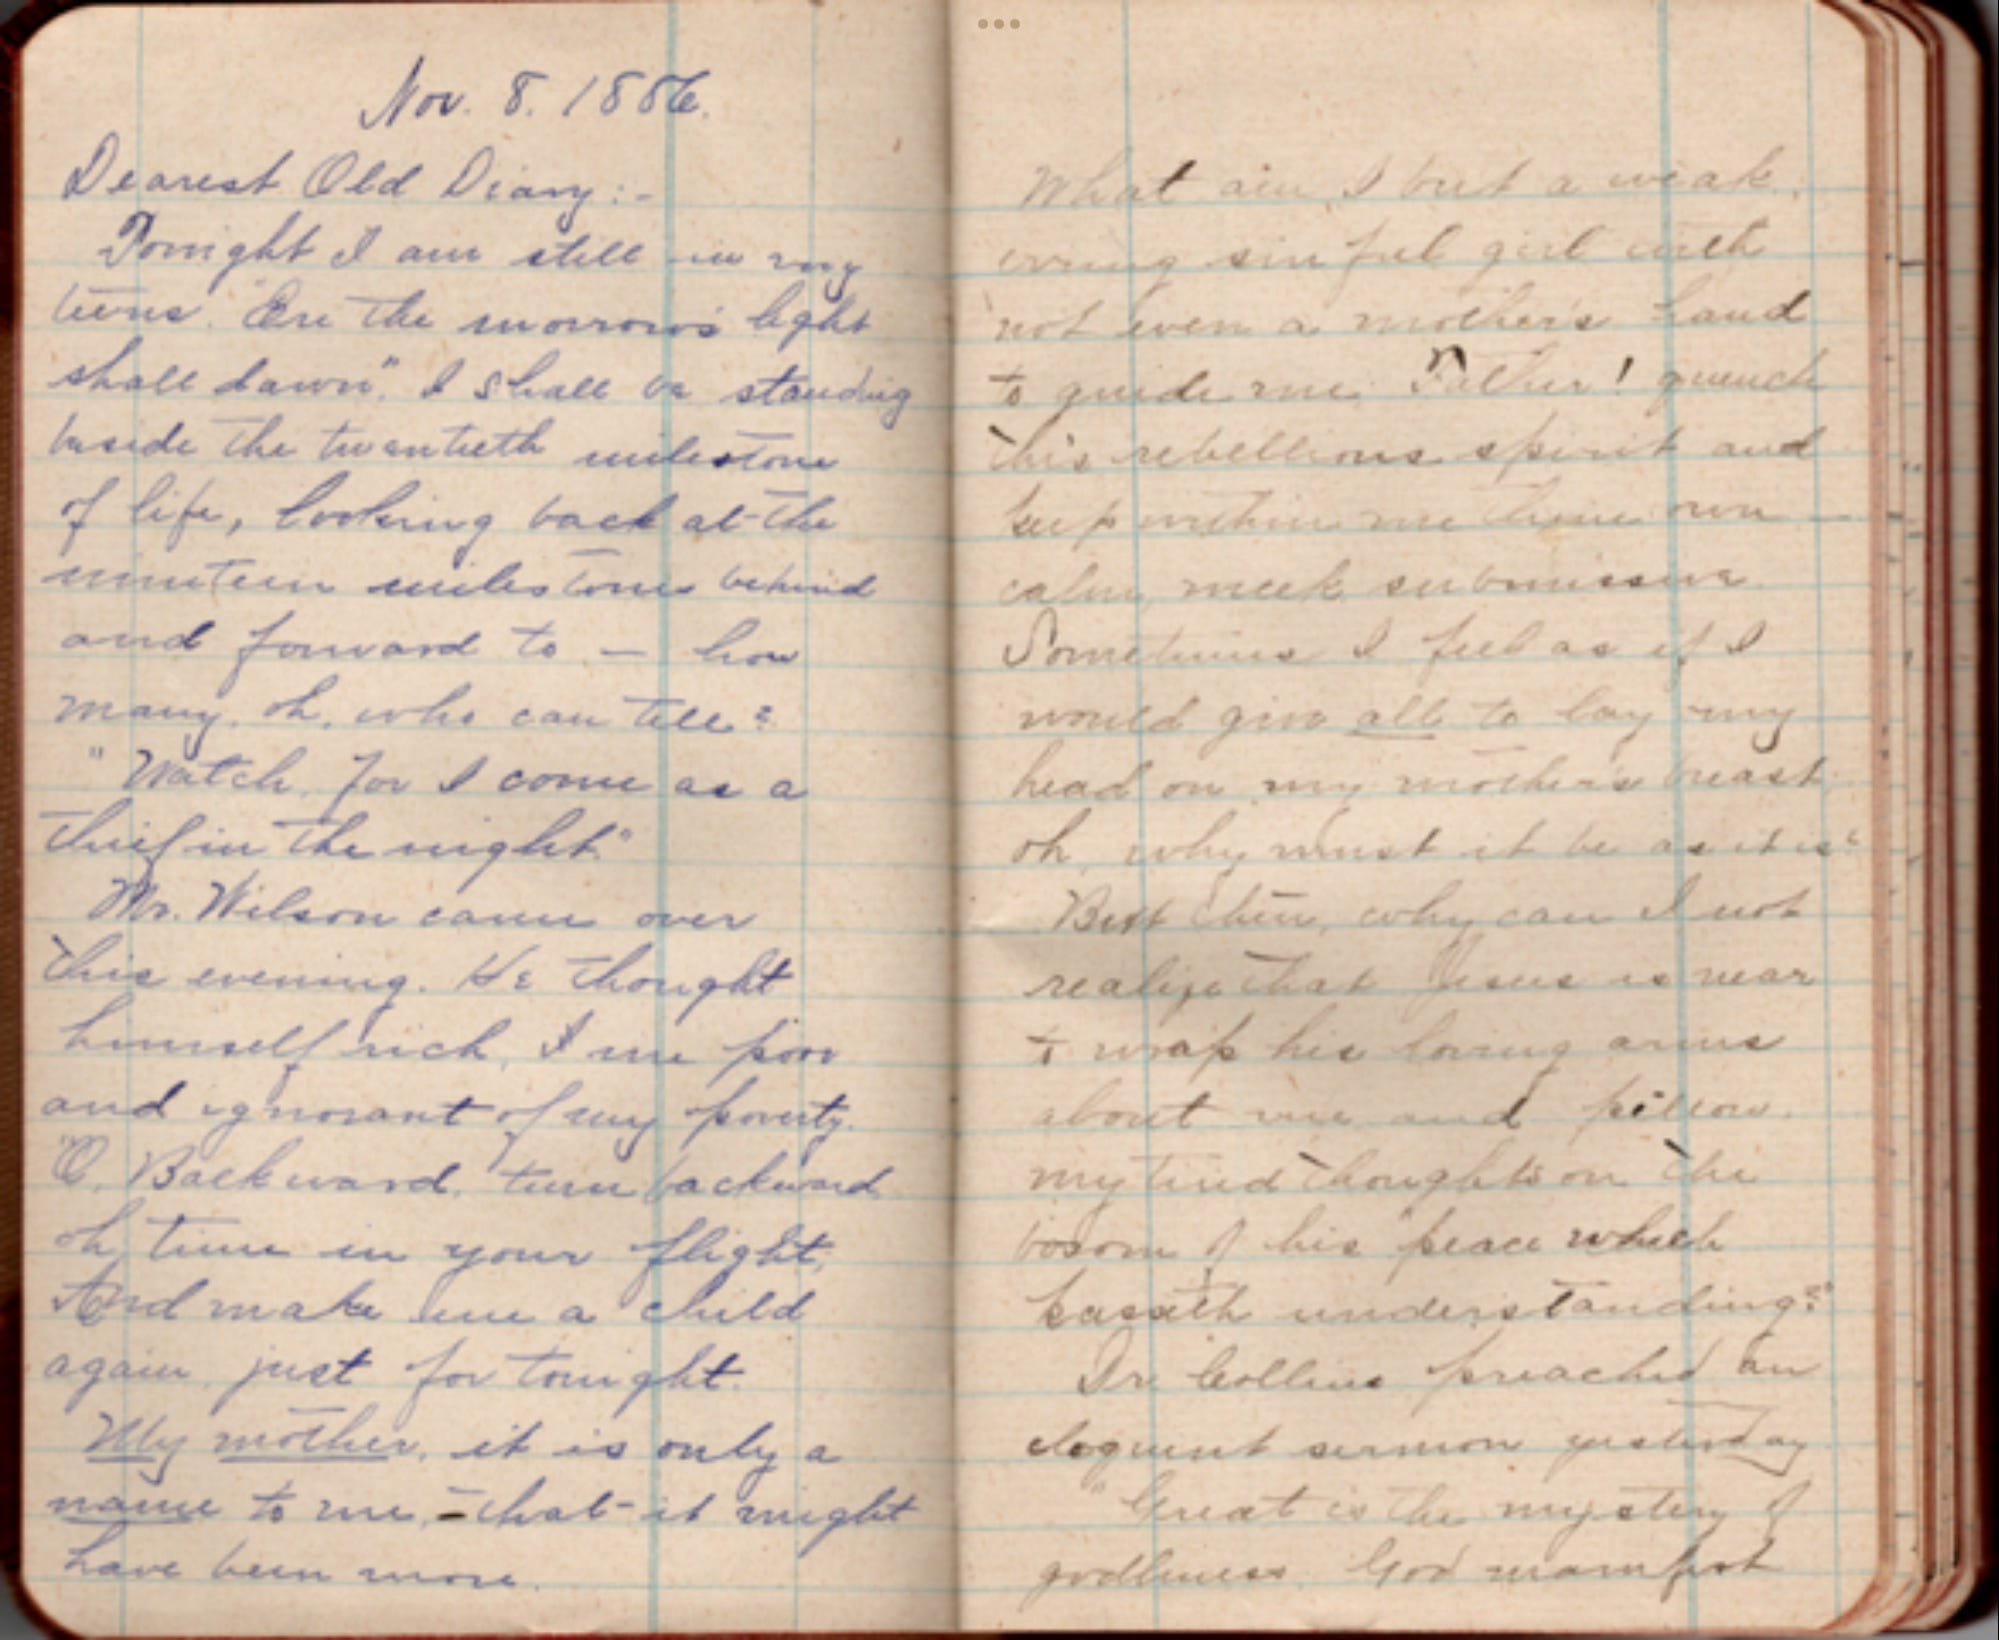 Nov. 8. 1886.
Dearest Old Diary:-
Tonight I am still in my
teens. "Ere the morrow's light
shall dawn", I shall be standing
beside the twentieth milestone
of life, looking back at the
nineteen milestones behind
and forward to — how
many, oh, who can tell?
"Watch, for I come as a
thief in the night."
Mr. Wilson came over
this evening. He thought
himself rich, I me poor
and ignorant of my poverty.
"O, Backward, turn backward
oh, time in your flight,
And make me a child
again, just for tonight.
My mother, it is only a
name to me, - that it might
have been more.
What am I but a weak,
erring sinful girl with
not even a mother's hand
to guide me. Father! quench
this rebellious spirit and
keep within me thine own
calm, meek submissive.
Sometimes I feel as if I
would give all to lay my
head on my mother's breast,
oh, why must it be as it is?
But then, why can I not
realize that Jesus is near
to wrap his loving arms
about me and pillow
my tired thoughts on the
bosom of his "peace which
passeth understanding?"
Dr. Collins preached an
eloquent sermon yesterday
"Great is the mystery of
godliness. God manifest